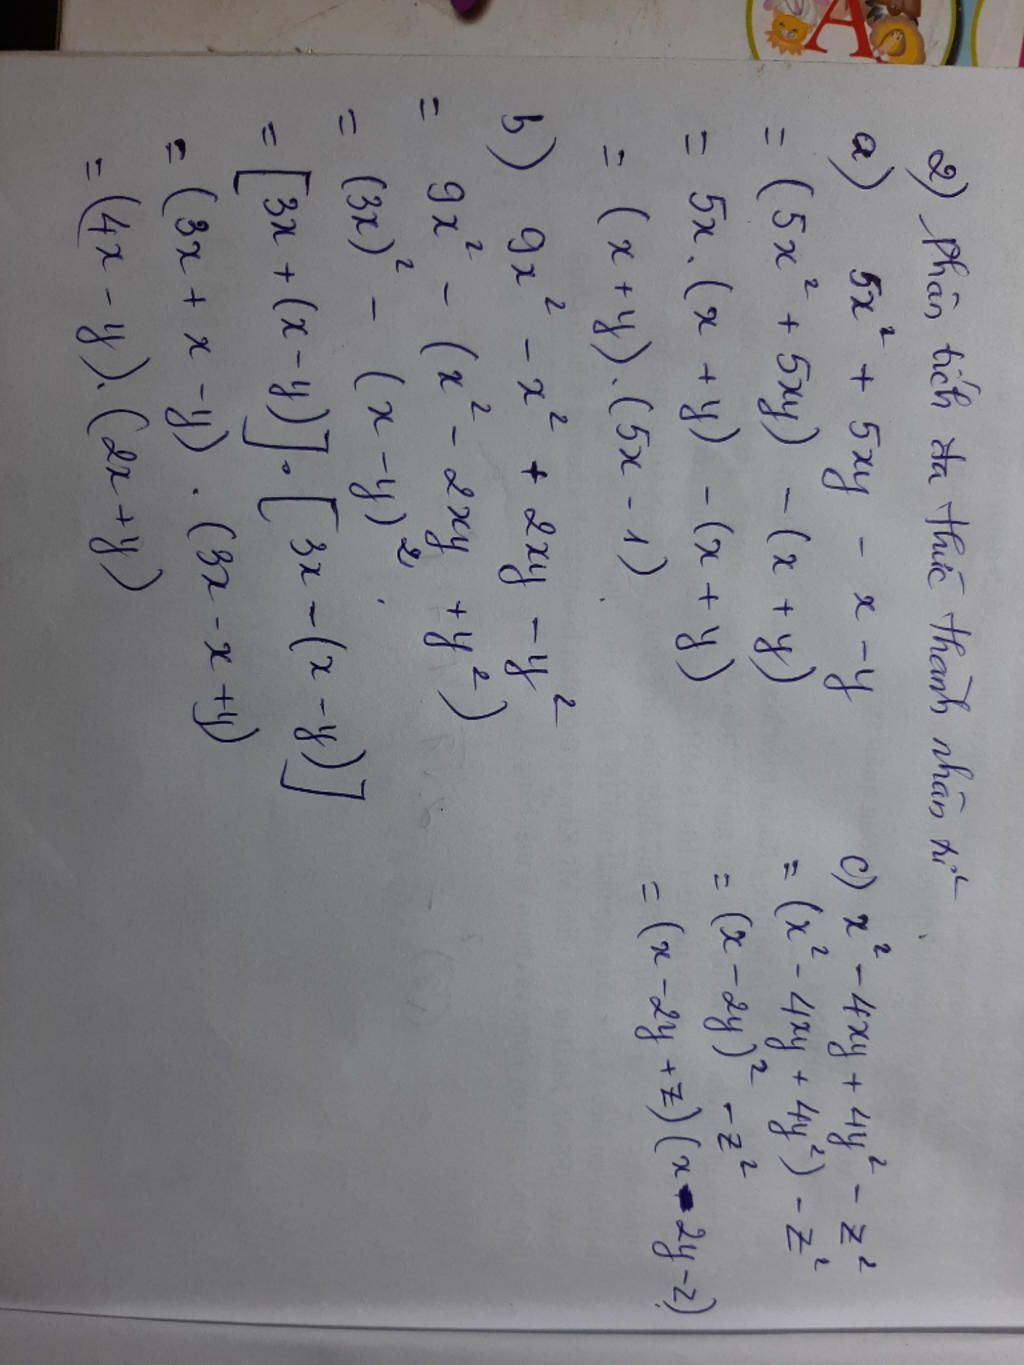 A
2) phân tích đa thức thành nhân tử
a) 5x² + 5xy - x - y
= (5x² + 5xy) - (x + y)
= 5x.(x + y) - (x + y)
= (x + y).(5x - 1)
b) 9x² - x² + 2xy - y²
= 9x² - (x² - 2xy + y²)
= (3x)² - (x - y)²
= [3x + (x - y)].[3x - (x - y)]
= (3x + x - y).(3x - x + y)
= (4x - y).(2x + y)
c) x² - 4xy + 4y² - z²
= (x² - 4xy + 4y²) - z²
= (x - 2y)² - z²
= (x - 2y + z)(x - 2y - z)